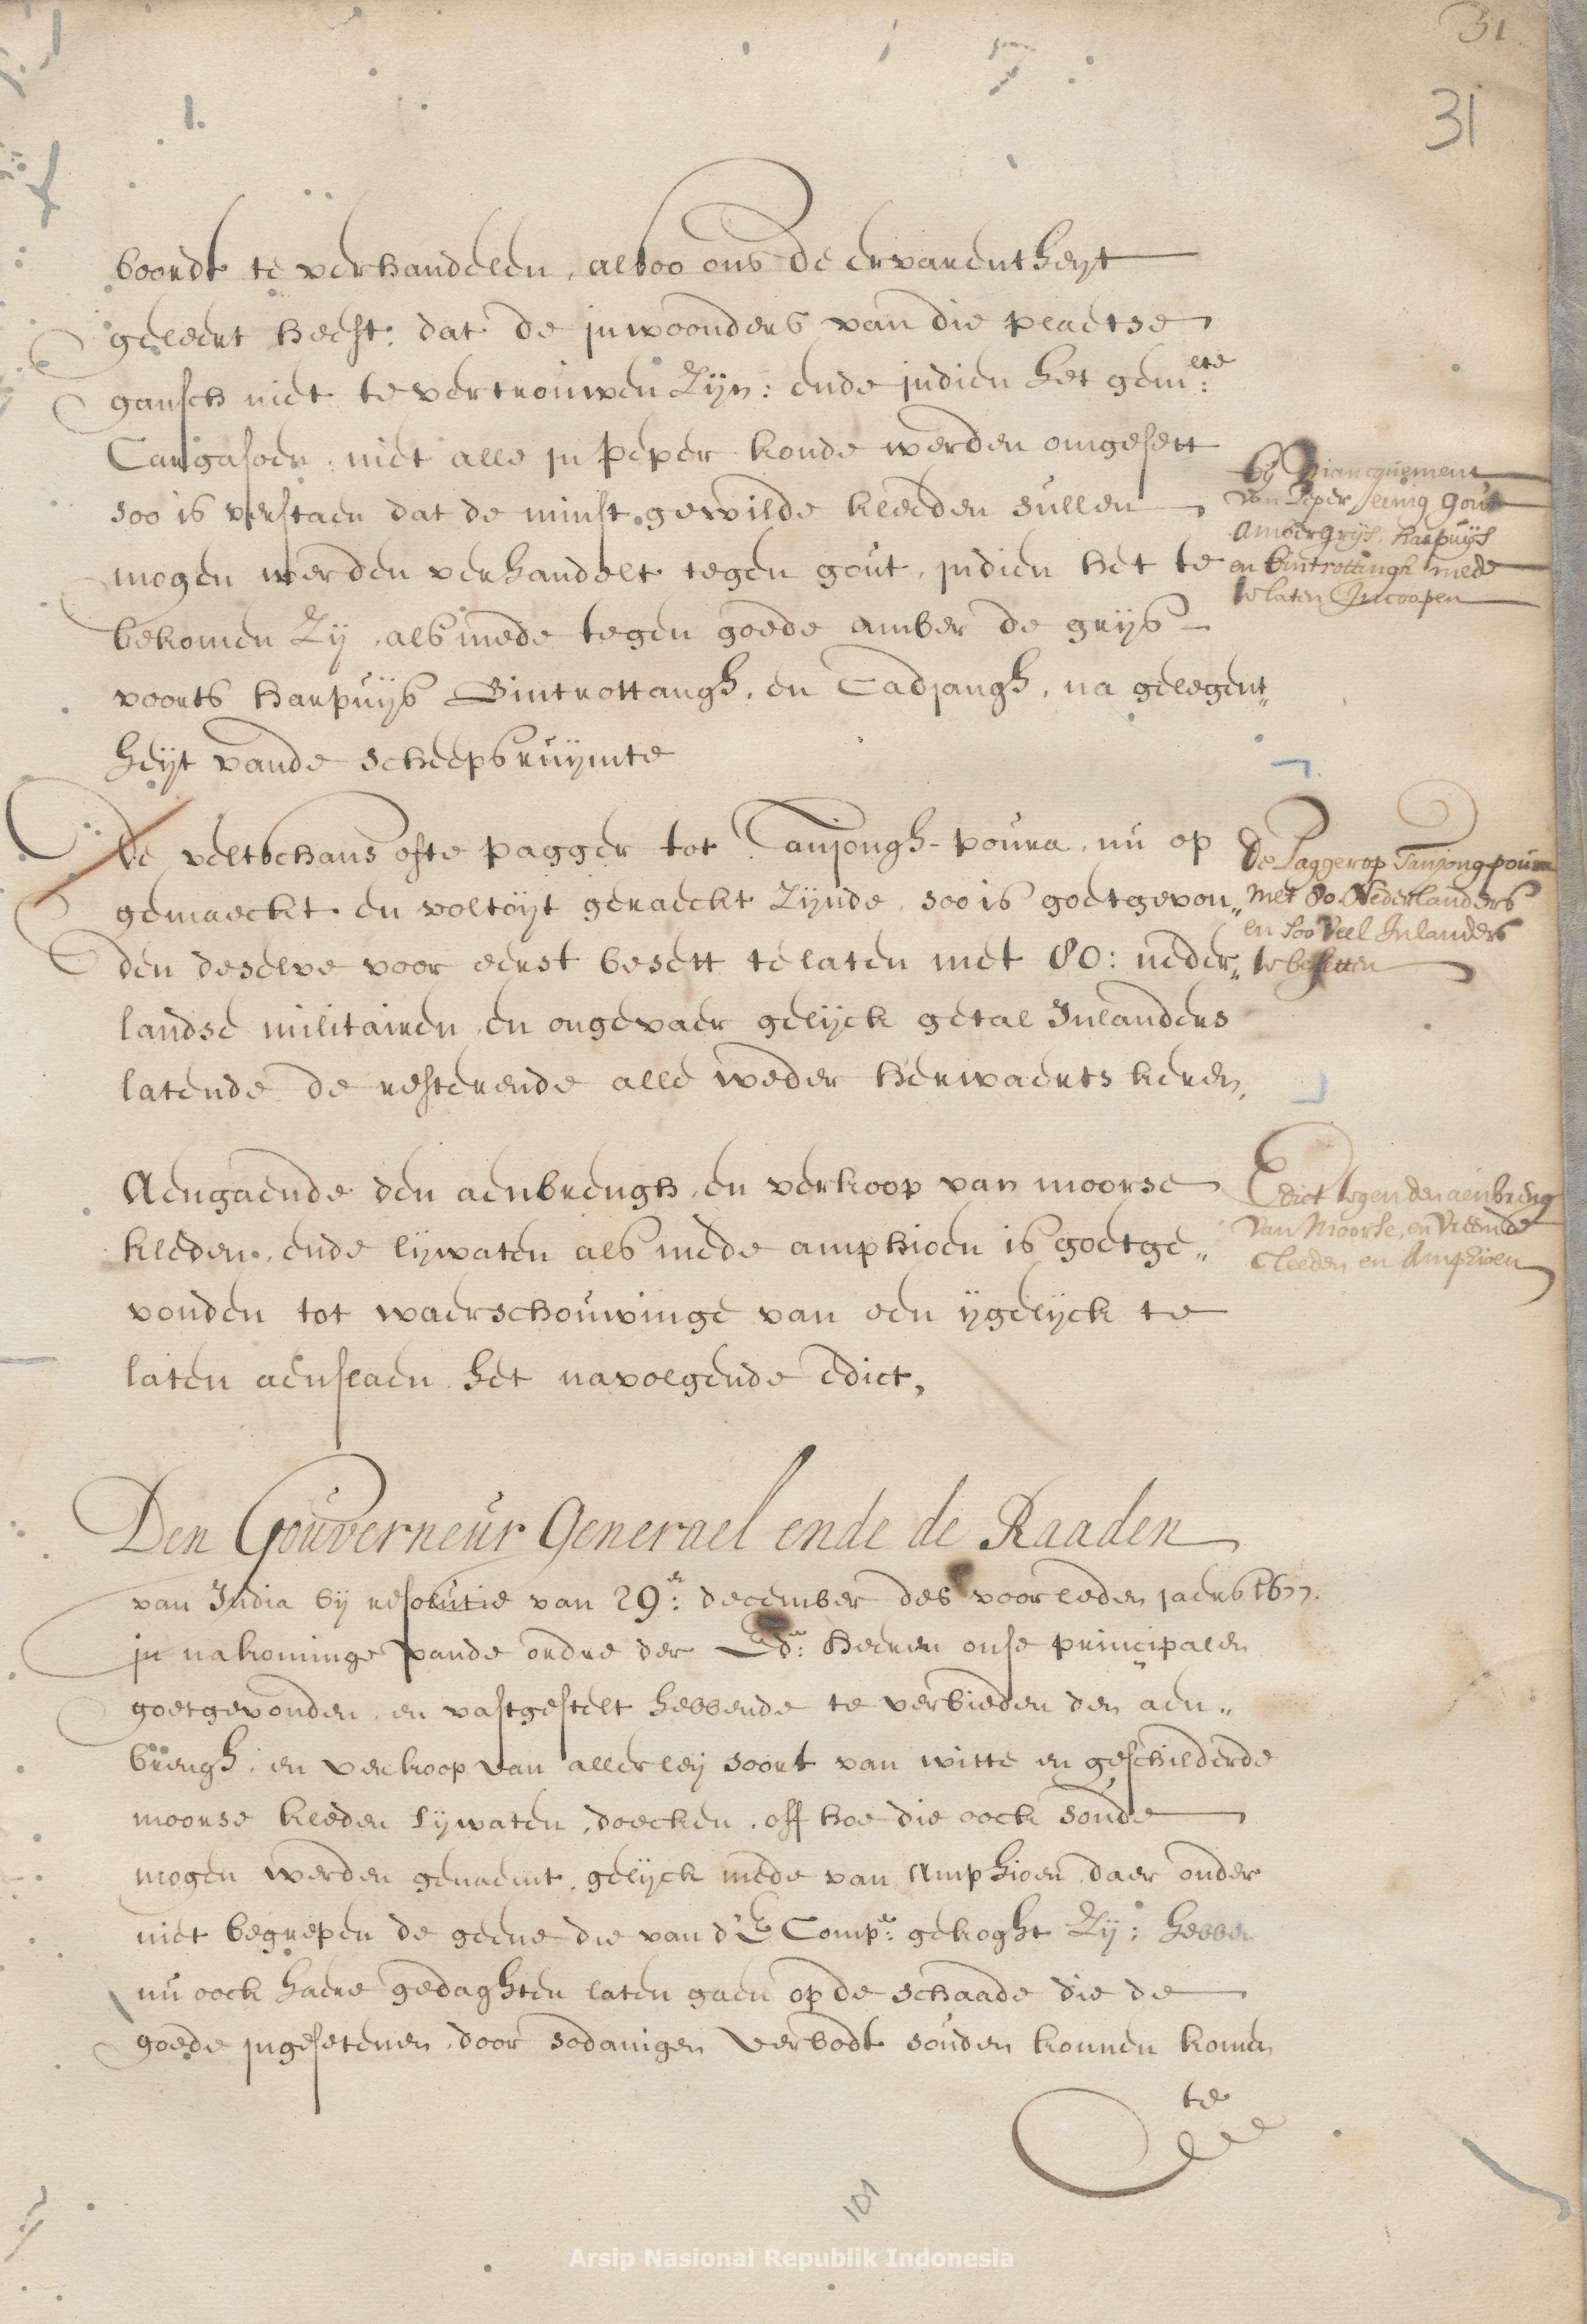 31
31
boordt te verhandelen, alsoo ons de ervarentheyt
geleert heeft, dat de inwoonders van die plaetse
gansch niet te vertrouwen zijn: ende indien het gem:lte
Cargasoen niet alle in peper konde werden omgesett
soo is verstaen dat de minst gewilde kleeden sullen
mogen werden verhandelt tegen gout, indien het te
bekomen zy, als mede tegen goede amber de grijs
voorts harpuijs Bintrottangh, en Cadjangh, na gelegent„
heyt vande scheepsruijmte
bij Mancquement
van Peper, eenig gout
Ambergrijs, harpuijs
en bintrottingh mede
te laten Incoopen
de veltschans ofte pagger tot Tanjongh-poura, nu op
gemaeckt en voltoijt geraeckt zijnde, soo is goetgevon„
den deselve voor eerst besett te laten met 80: neder„
landse militairen en ongevaer gelijck getal Inlanders
latende de resterende alle weder herwaerts keren,
de Pagger op Tanjongpoura
met 80. Nederlanders
en soo veel Inlanders
te besetten
Aengaende den aenbrengh, en verkoop van moorse
kleden, ende lijwaten als mede amphioen is goetge„
vonden tot waerschouwinge van een ijgelijck te
laten aenslaen het navolgende edict,
Edict tegen den aenbreng
van Moorse, en vreemde
cleeden en Amphioen
Den Gouverneur Generael ende de Raaden
van India bij resolutie van 29:e december des voorleden jaers 1677.
in nakominge vande ordre der Ed:e heeren onse principalen
goetgevonden, en vastgestelt hebbende te verbieden den aen„
brengh, en verkoop van allerleij soort van witte en geschilderde
moorse kleden lijwaten, doecken, off hoe die oock sonde
mogen werden genaemt, gelijck mede van Amphioen daer onder
niet begrepen de geene die van d'E Comp:e gekoght zij; hebben
nu oock haere gedaghten laten gaen op de schaade die de
goede ingesetenen, door sodanigen verbodt souden konnen komen
te
101
Arsip Nasional Republik Indonesia